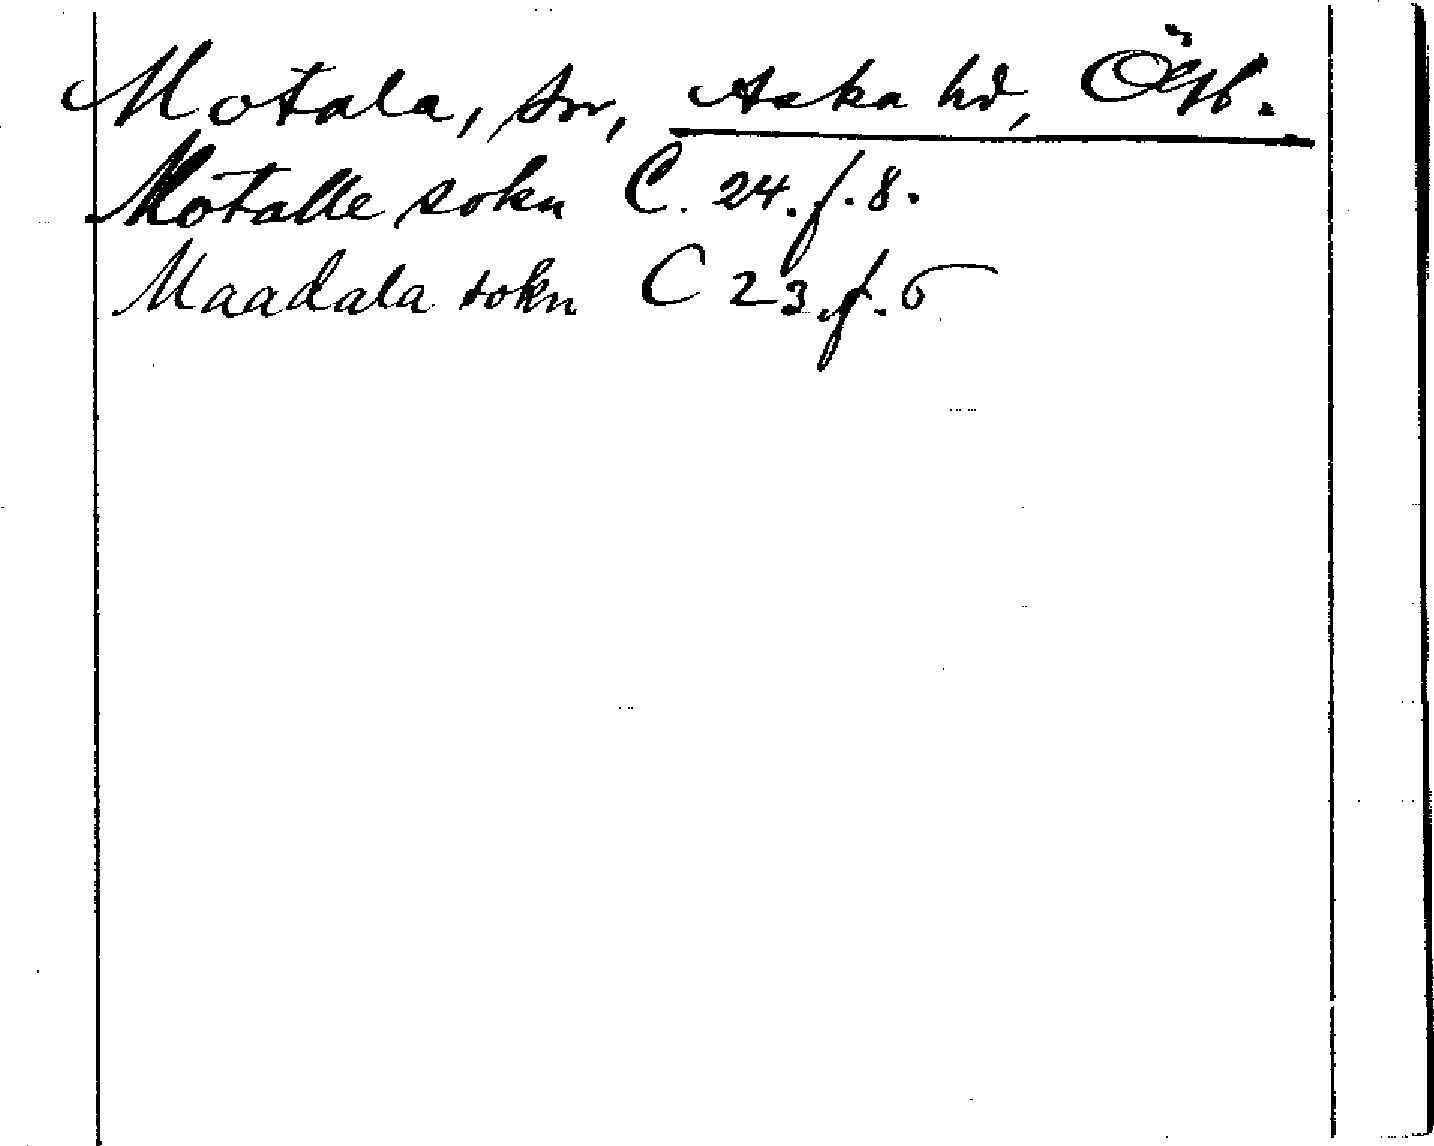 Motala, sn, Aska hd, Ögtl.
Motalle sokn C. 24. f. 8.
Maadala sokn C 23. f. 6